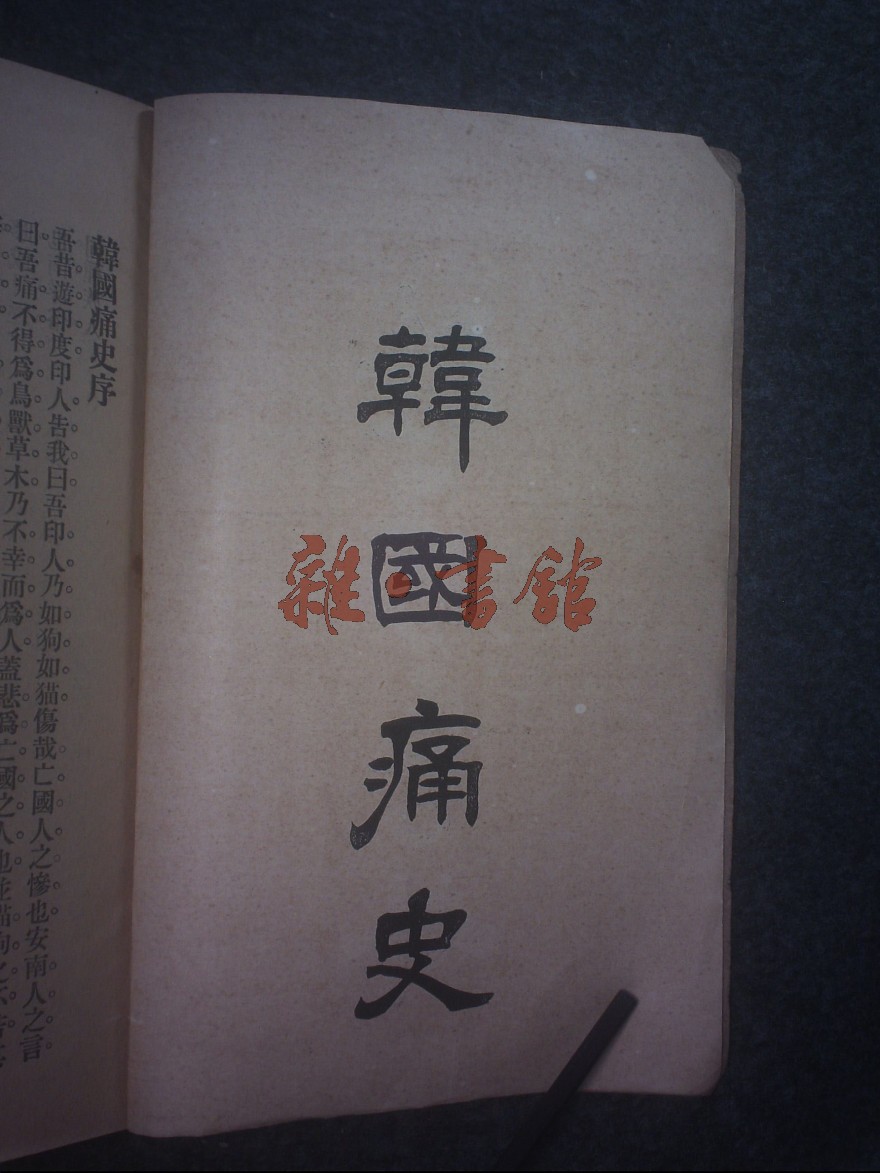 韓國痛史
雜·書館
韓國痛史序
吾昔遊印度印人告我曰吾印人乃如狗如猫傷哉亡國人之慘也安南人之言
曰吾痛不得爲鳥獸草木乃不幸而爲人蓋悲爲亡國之人也並猫狗之不